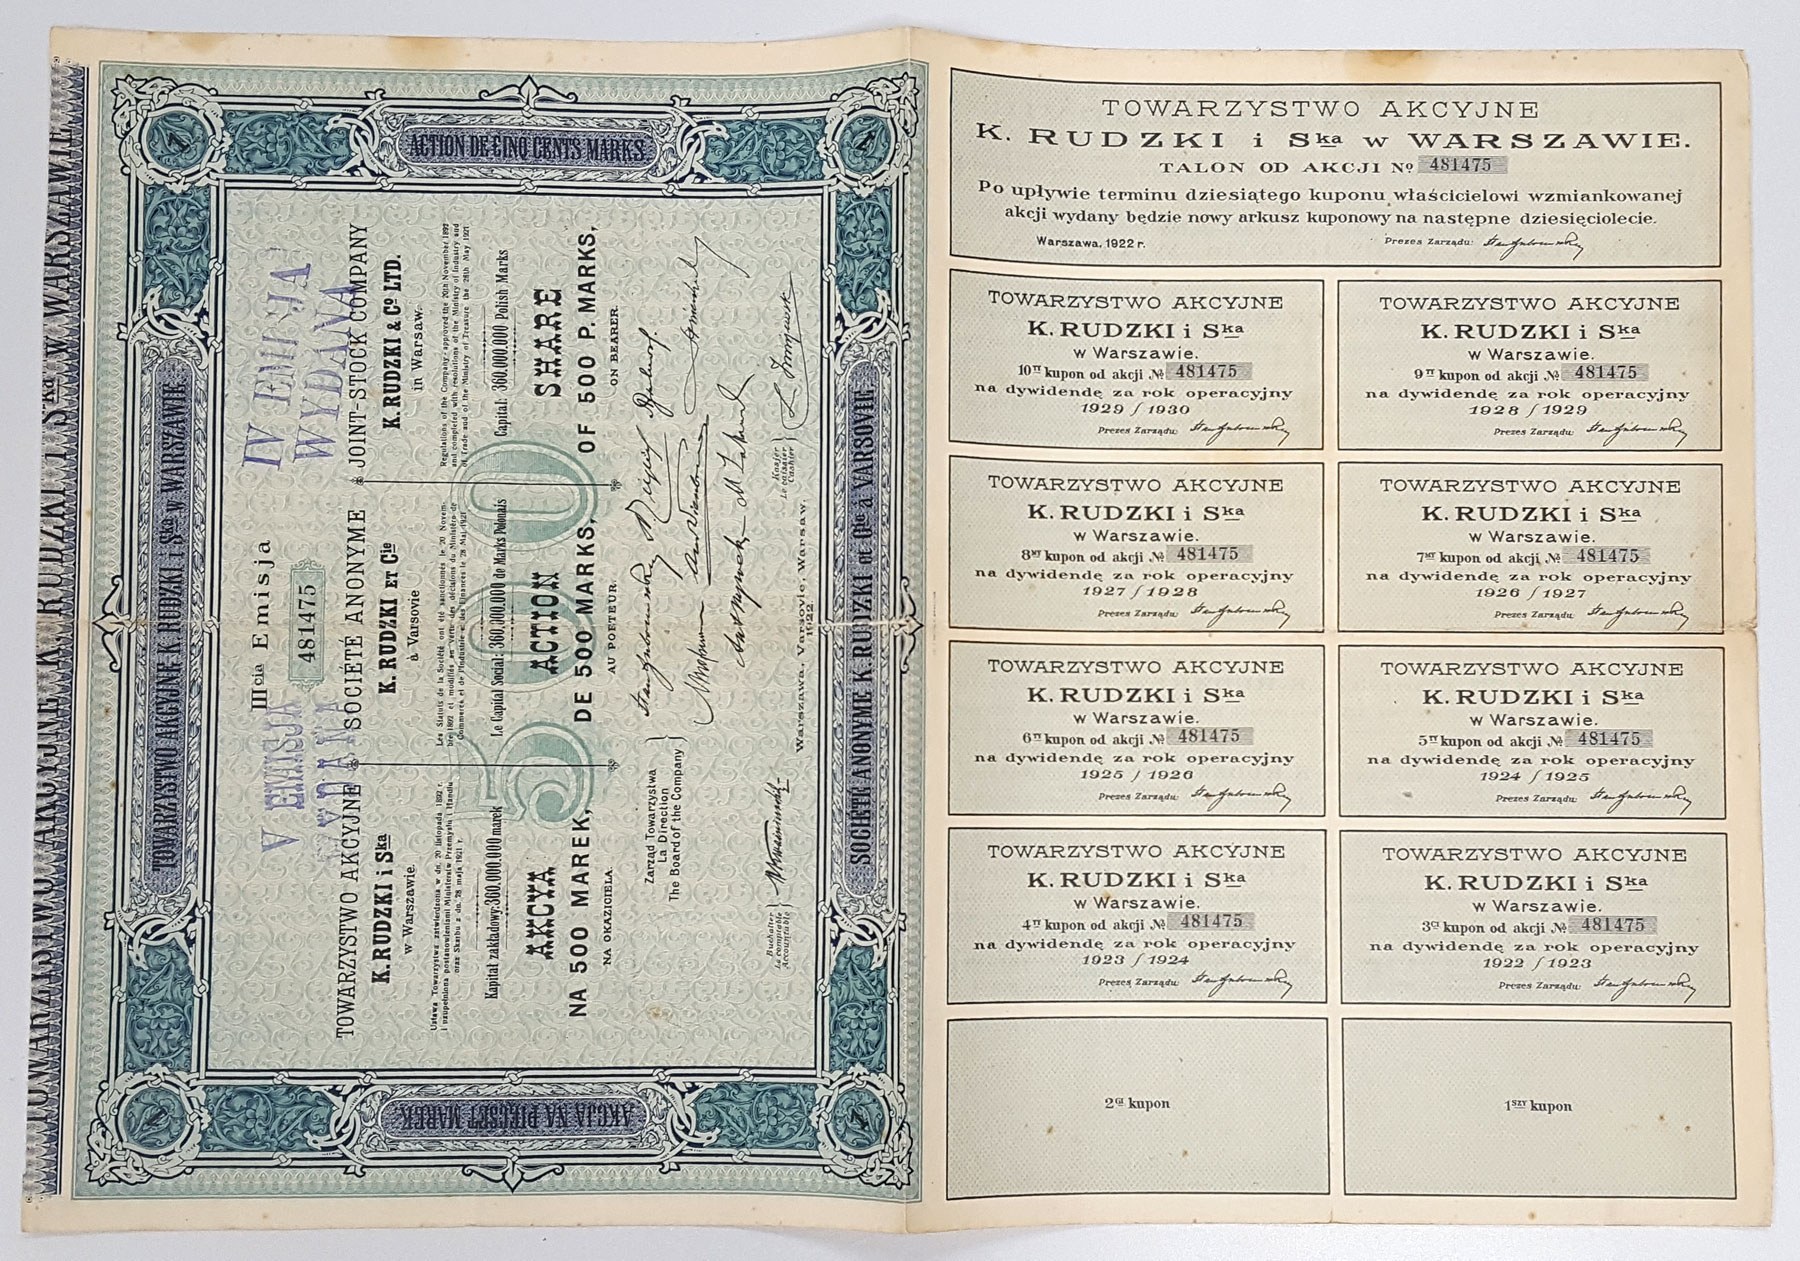 TOWARZYSTWO AKCYJNE K. RUDZKI i Ska w WARSZAWIE.
ACTION DE CINQ CENTS MARKS
TOWARZYSTWO AKCYJNE K. RUDZKI i Ska w WARSZAWIE.
SOCIÉTÉ ANONYME K. RUDZKI et Cie à VARSOVIE.
AKCJA NA PIĘĆSET MAREK
1
1
1
1
IV EMISJA
WYDANA
V EMISJA
WYDANA
IIIcia Emisja
481475
TOWARZYSTWO AKCYJNE
K. RUDZKI i Ska
w Warszawie.
Ustawa Towarzystwa zatwierdzona w dn. 20 listopada 1892 r.
i uzupełniona postanowieniami Ministerjów Przemysłu i Handlu
oraz Skarbu z dn. 28 maja 1921 r.
Kapitał zakładowy: 360.000.000 marek
AKCYA
NA 500 MAREK,
NA OKAZICIELA.
SOCIÉTÉ ANONYME
K. RUDZKI ET Cie
à Varsovie
Les Statuts de la Société ont été sanctionnés le 20 Novem-
bre 1892 et modifiés en vertu des décisions du Ministère de
Commerce et de l'Industrie et des Finances le 28 Mai 1921
Le Capital Social: 360,000,000 de Marks Polonais
ACTION
DE 500 MARKS,
AU PORTEUR.
JOINT-STOCK COMPANY
K. RUDZKI & Co LTD.
in Warsaw.
Regulations of the Company approved the 20th November 1892
and completed with resolutions of the Ministry of Industry and
of Trade and of the Ministry of Treasure the 28th May 1921
Capital: 360.000.000 Polish Marks
SHARE
OF 500 P. MARKS,
ON BEARER.
500
Zarząd Towarzystwa
La Direction
The Board of the Company
Buchalter
Le comptable
Accountable
Kasjer
Le caissier
Cashier
Warszawa, Varsovie, Warsaw,
1922
TOWARZYSTWO AKCYJNE
K. RUDZKI i Ska w WARSZAWIE.
TALON OD AKCJI No 481475
Po upływie terminu dziesiątego kuponu właścicielowi wzmiankowanej
akcji wydany będzie nowy arkusz kuponowy na następne dziesięciolecie.
Warszawa, 1922 r.
Prezes Zarządu:
TOWARZYSTWO AKCYJNE
K. RUDZKI i Ska
w Warszawie.
10ty kupon od akcji № 481475
na dywidendę za rok operacyjny
1929 / 1930
Prezes Zarządu:
TOWARZYSTWO AKCYJNE
K. RUDZKI i Ska
w Warszawie.
9ty kupon od akcji № 481475
na dywidendę za rok operacyjny
1928 / 1929
Prezes Zarządu:
TOWARZYSTWO AKCYJNE
K. RUDZKI i Ska
w Warszawie.
8my kupon od akcji № 481475
na dywidendę za rok operacyjny
1927 / 1928
Prezes Zarządu:
TOWARZYSTWO AKCYJNE
K. RUDZKI i Ska
w Warszawie.
7my kupon od akcji № 481475
na dywidendę za rok operacyjny
1926 / 1927
Prezes Zarządu:
TOWARZYSTWO AKCYJNE
K. RUDZKI i Ska
w Warszawie.
6ty kupon od akcji № 481475
na dywidendę za rok operacyjny
1925 / 1926
Prezes Zarządu:
TOWARZYSTWO AKCYJNE
K. RUDZKI i Ska
w Warszawie.
5ty kupon od akcji № 481475
na dywidendę za rok operacyjny
1924 / 1925
Prezes Zarządu:
TOWARZYSTWO AKCYJNE
K. RUDZKI i Ska
w Warszawie.
4ty kupon od akcji № 481475
na dywidendę za rok operacyjny
1923 / 1924
Prezes Zarządu:
TOWARZYSTWO AKCYJNE
K. RUDZKI i Ska
w Warszawie.
3ci kupon od akcji № 481475
na dywidendę za rok operacyjny
1922 / 1923
Prezes Zarządu:
2gi kupon
1szy kupon